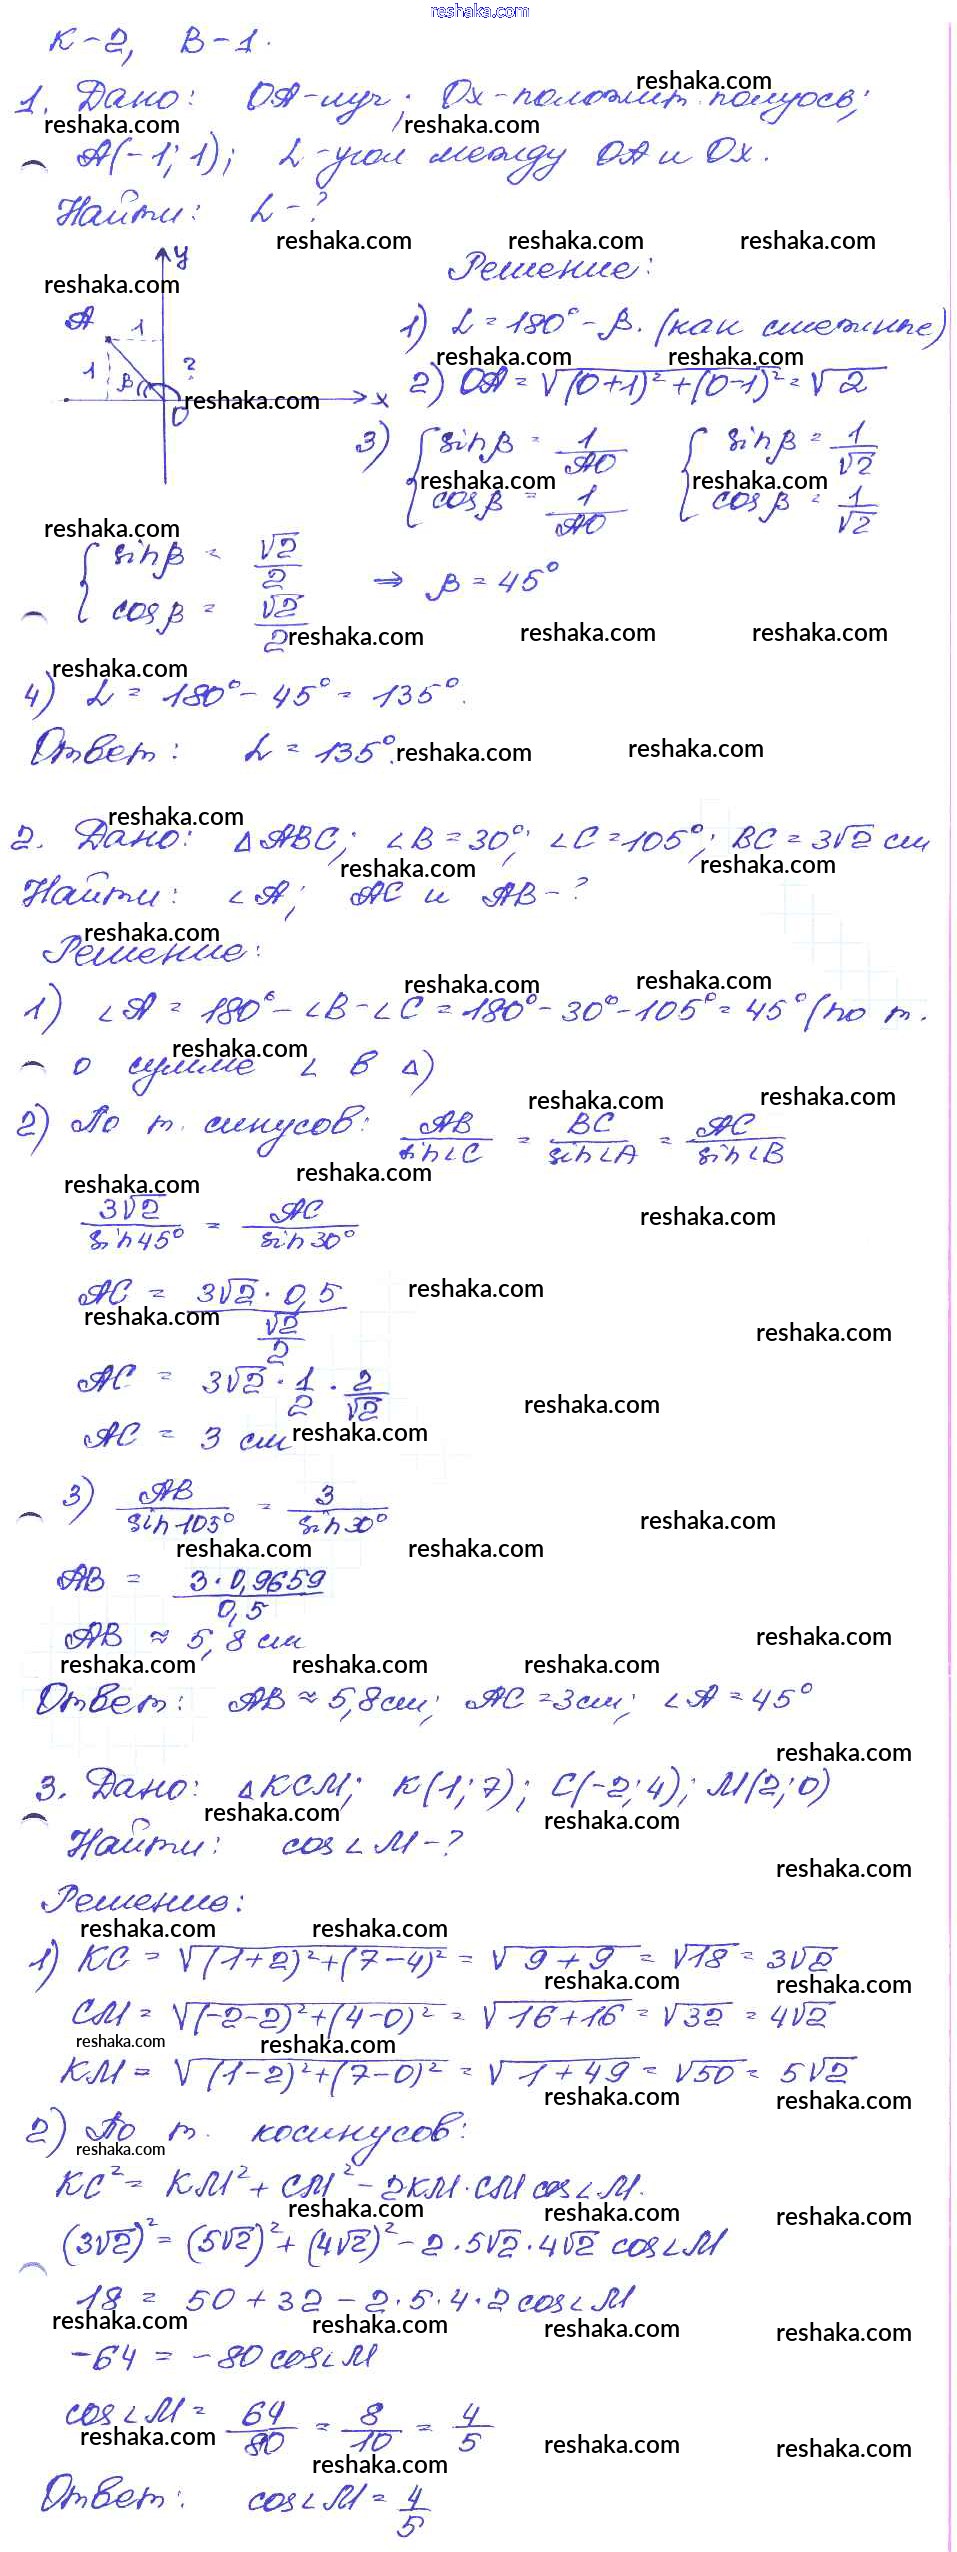 reshaka.com
К-2, В-1.
1. Дано: OA-луч; Ox-положит. полуось;
A(-1; 1); L-угол между OA и Ox.
Найти: L-?
y
A 1
1 β ?
O x
Решение:
1) L = 180° - β. (как смежные)
2) OA = √(0+1)² + (0-1)² = √2
3) { sin β = 1/AO { sin β = 1/√2
cos β = 1/AO cos β = 1/√2
{ sin β = √2/2
cos β = √2/2 ⇒ β = 45°
4) L = 180° - 45° = 135°.
Ответ: L = 135°.
2. Дано: △ABC; ∠B = 30°; ∠C = 105°; BC = 3√2 см
Найти: ∠A; AC и AB-?
Решение:
1) ∠A = 180° - ∠B - ∠C = 180° - 30° - 105° = 45° (по т.
о сумме ∠ в △)
2) По т. синусов: AB/sin∠C = BC/sin∠A = AC/sin∠B
3√2/sin45° = AC/sin30°
AC = 3√2 · 0,5 / √2/2
AC = 3√2 · 1/2 · 2/√2
AC = 3 см
3) AB/sin105° = 3/sin30°
AB = 3 · 0,9659 / 0,5
AB ≈ 5,8 см
Ответ: AB ≈ 5,8 см; AC = 3 см; ∠A = 45°
3. Дано: △KCM; K(1; 7); C(-2; 4); M(2; 0)
Найти: cos∠M-?
Решение:
1) KC = √(1+2)² + (7-4)² = √9+9 = √18 = 3√2
CM = √(-2-2)² + (4-0)² = √16+16 = √32 = 4√2
KM = √(1-2)² + (7-0)² = √1+49 = √50 = 5√2
2) По т. косинусов:
KC² = KM² + CM² - 2KM · CM cos∠M.
(3√2)² = (5√2)² + (4√2)² - 2 · 5√2 · 4√2 cos∠M
18 = 50 + 32 - 2 · 5 · 4 · 2 cos∠M
-64 = -80 cos∠M
cos∠M = 64/80 = 8/10 = 4/5
Ответ: cos∠M = 4/5